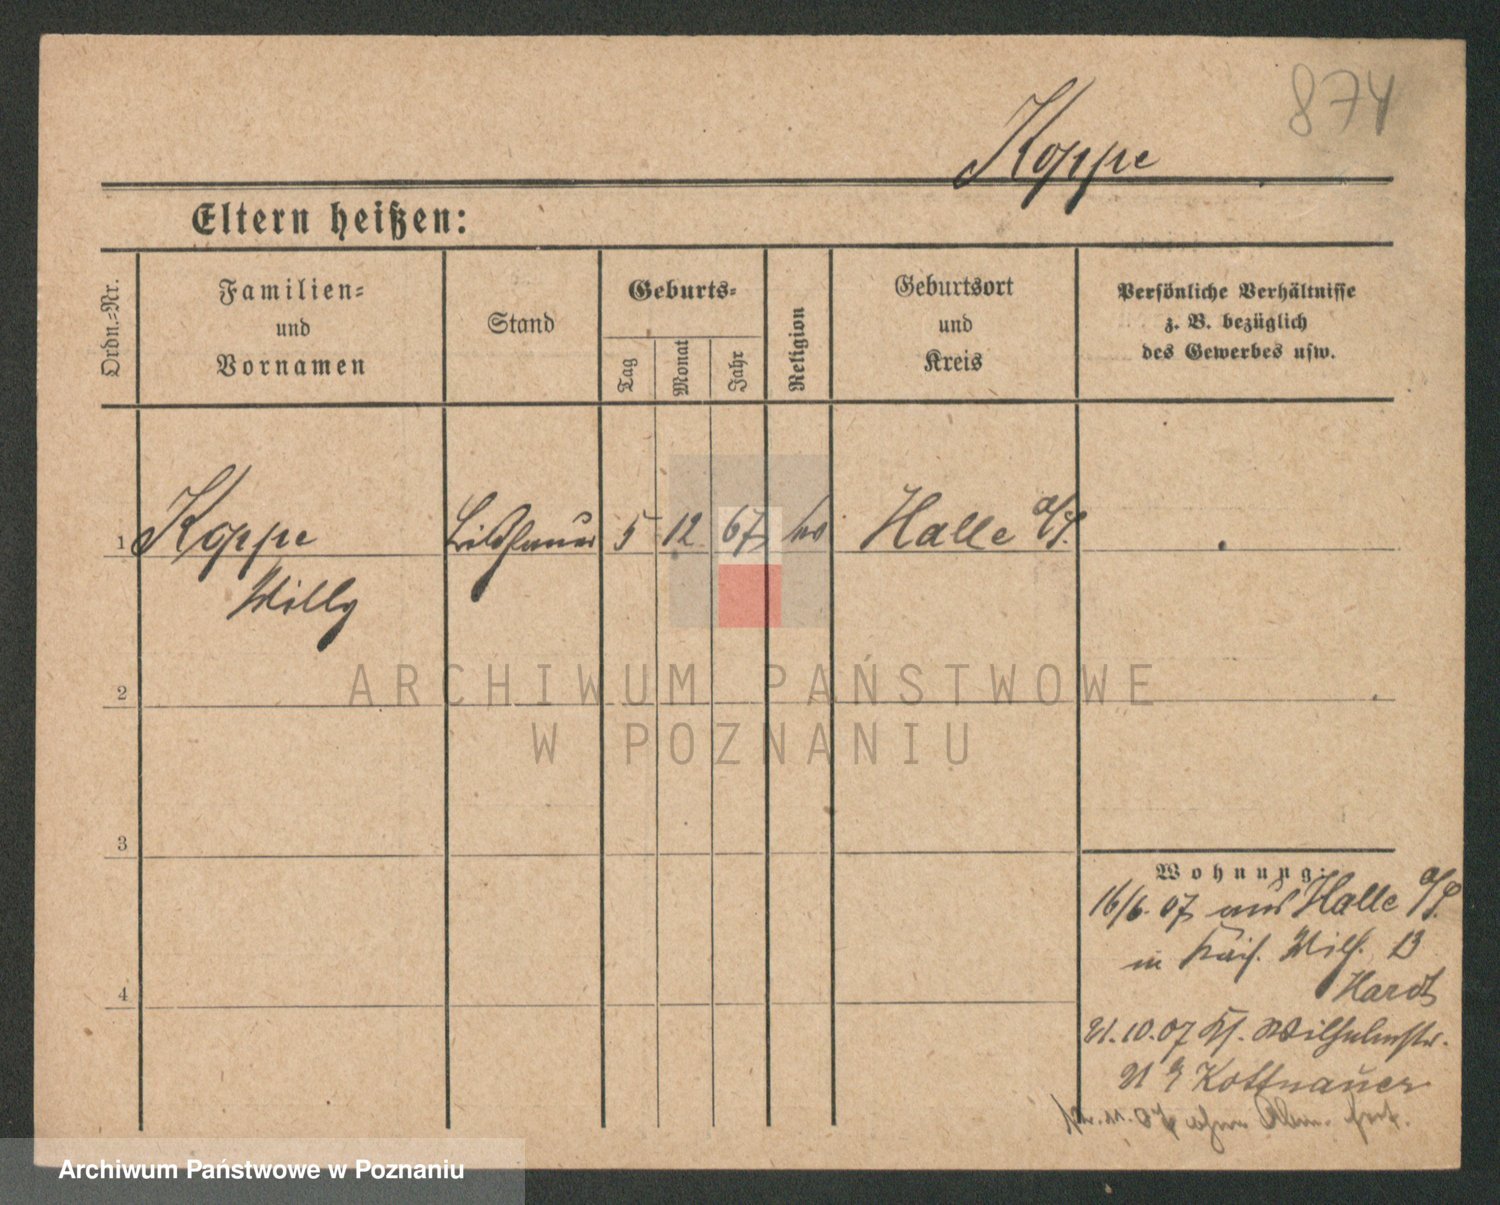 874
Koppe
Eltern heißen:
Ordn.-Nr.
Familien-
und
Vornamen
Stand
Geburts-
Tag
Monat
Jahr
Religion
Geburtsort
und
Kreis
Persönliche Verhältnisse
z. B. bezüglich
des Gewerbes usw.
1 Koppe Bildhauer 5 12 67 Halle a/S.
Willy
2
3
4
Wohnung:
16/6. 07 aus Halle a/S.
in Kais. Wilh. 13
Hardt
21.10.07 Wilhelmstr.
21 Kottnauer
ohne Abm. fort.
ARCHIWUM PAŃSTWOWE
W POZNANIU
Archiwum Państwowe w Poznaniu